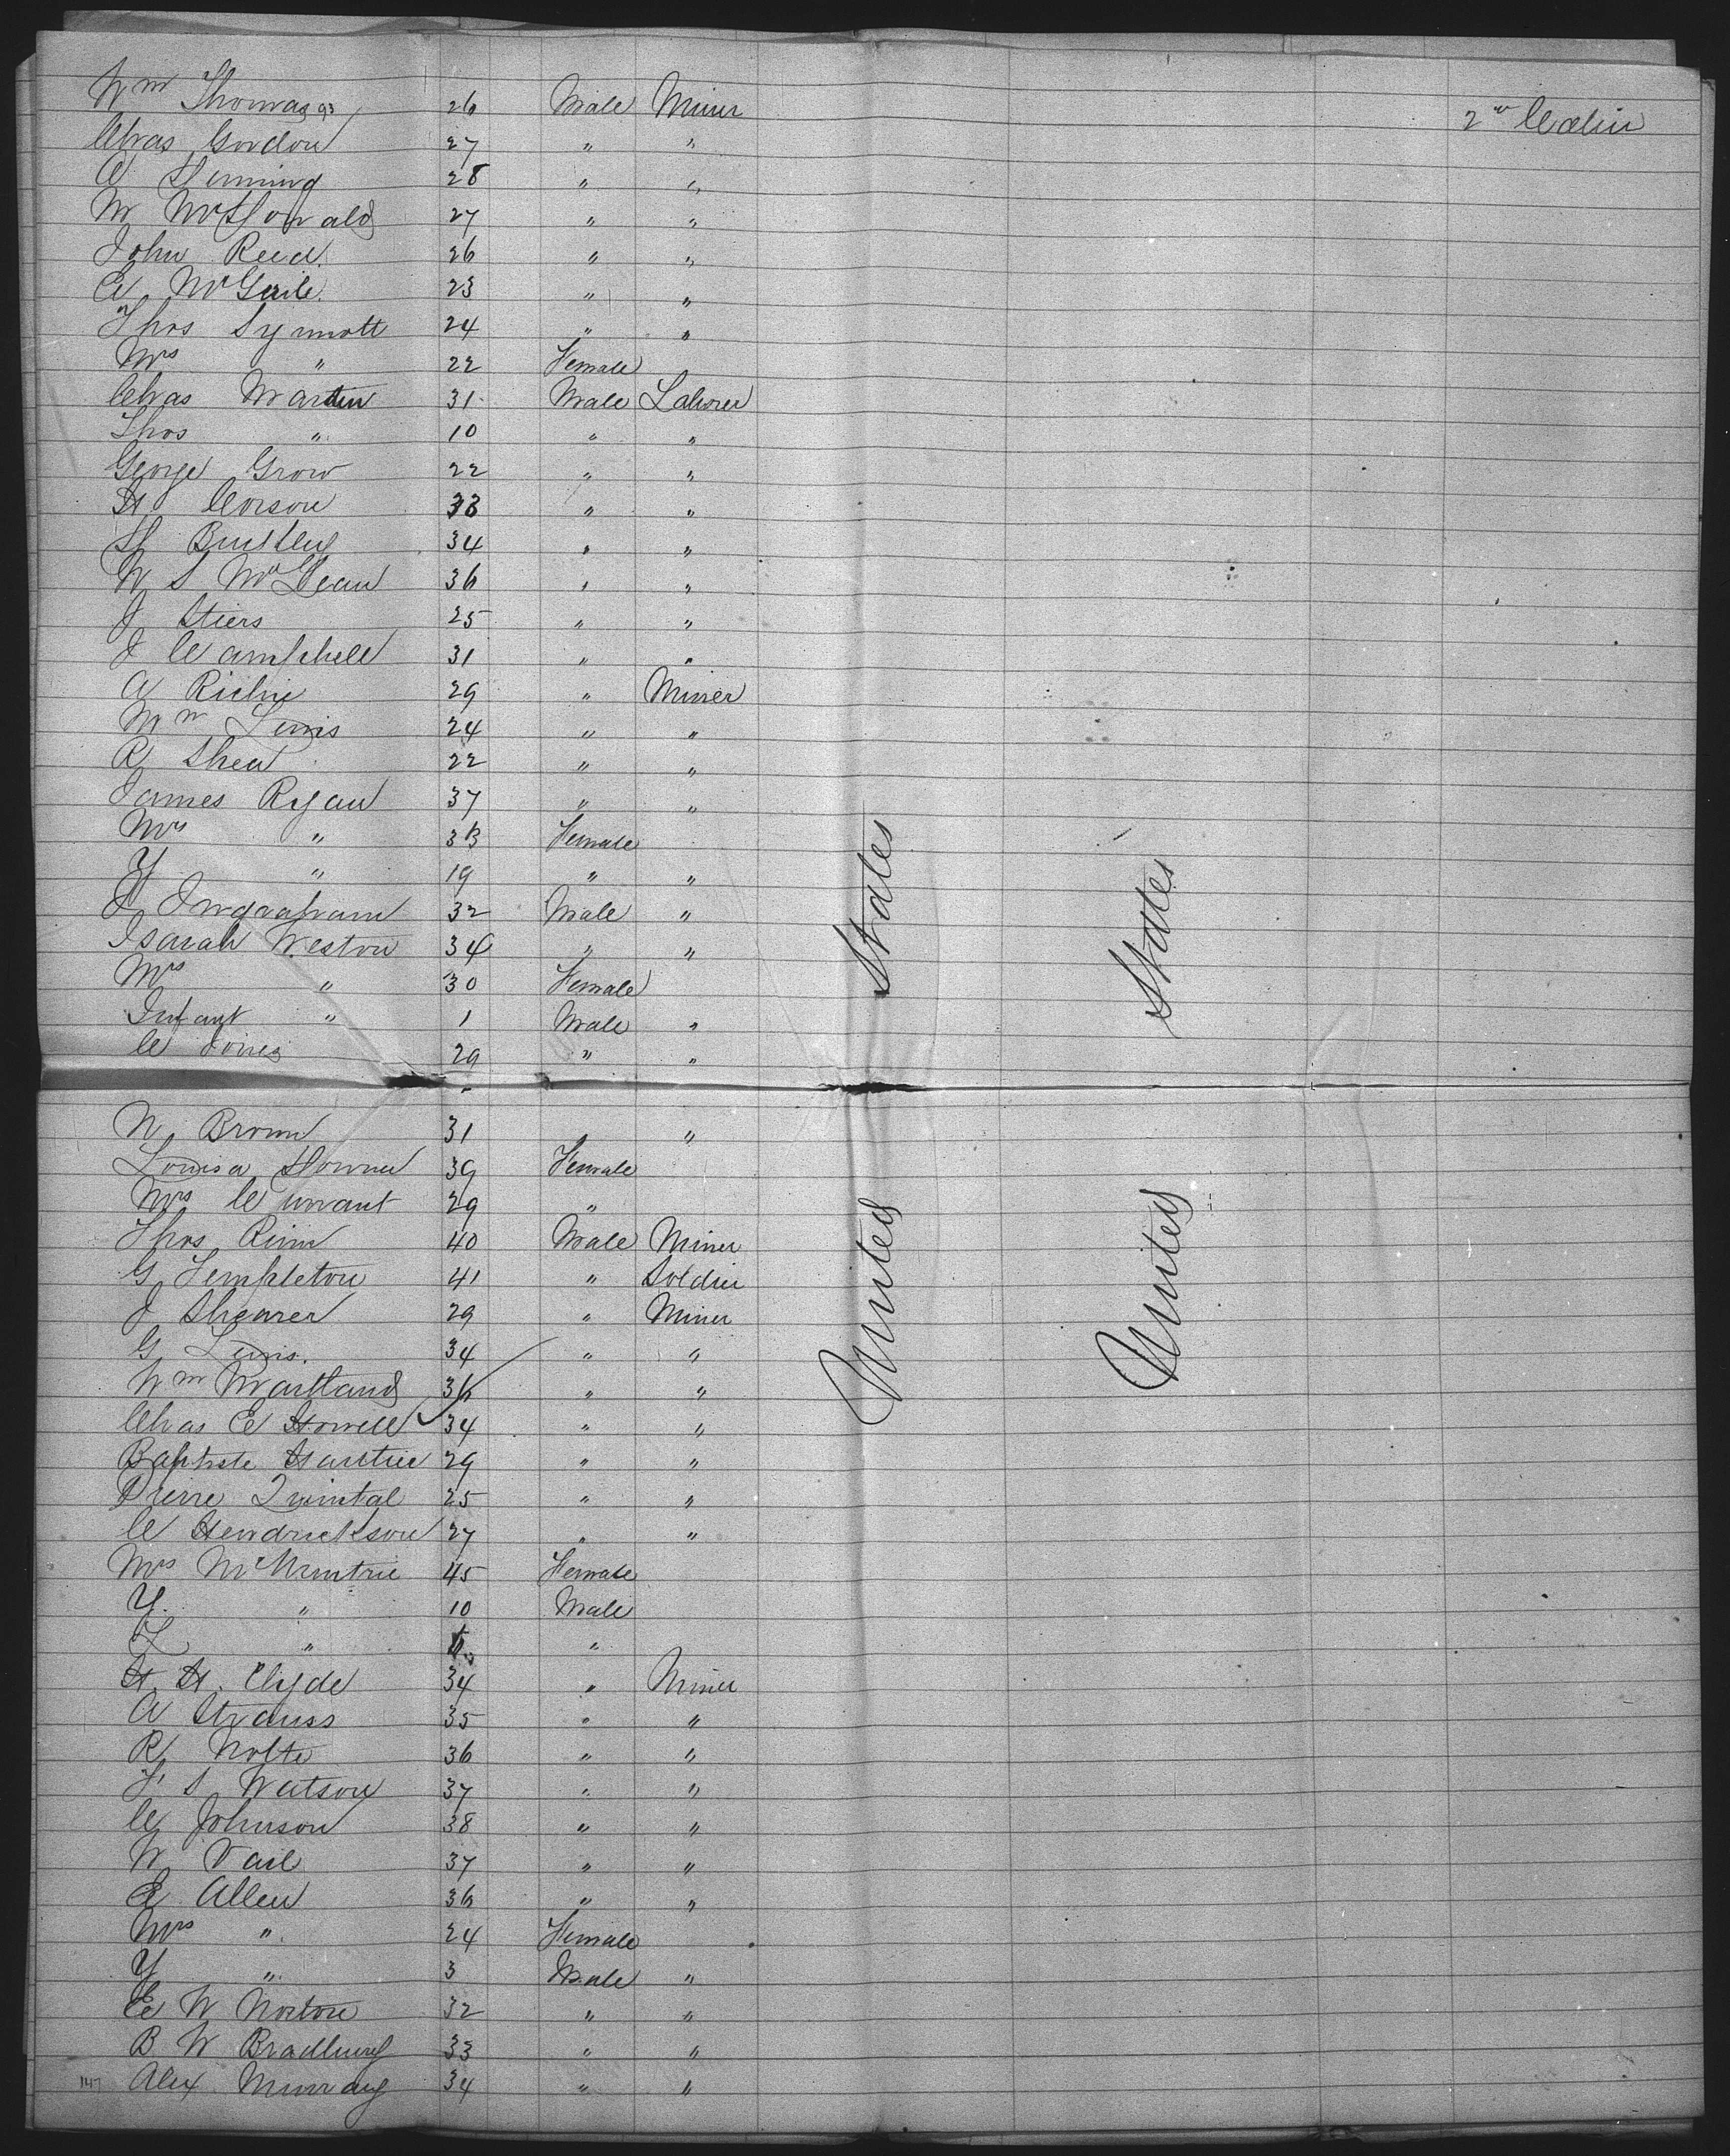 Wm Thomas 93 26 Male Miner 2nd Cabin
Chas Gordon 27 " "
A Fleming 28 " "
W McDonald 27 " "
John Reed 26 " "
C 23 " "
Thos Synnott 24 " "
Mrs " 22 Female
Chas Martin 31 Male Laborer
Thos " 10 " "
George Grow 22 " "
H Corson 33 " "
H 34 " "
W S McLean 36 " "
J Stiers 25 " "
J Campbell 31 " "
A Richie 29 " Miner
Wm Lewis 24 " "
R Shea 22 " "
James Ryan 37 " "
Mrs " 33 Female
Y " 19 " "
J Ingraham 32 Male "
Isaiah Weston 34 " "
Mrs " 30 Female
Infant " 1 Male "
C Jones 29 " "
N Brown 31 " "
Louisa 39 Female
Mrs Currant 29 "
Thos Rinn 40 Male Miner
G Templeton 41 " Soldier
J Shearer 29 " Miner
G Lewis. 34 " "
Wm Maitland 36 " "
Chas E Howell 34 " "
Baptiste 29 " "
Pierre Quintal 25 " "
C Hendrickson 27 " "
Mrs 45 Female
Y " 10 Male
" "
H. H. Clyde 34 " Miner
A Strauss 35 " "
R Nolte 36 " "
F S Watson 37 " "
C Johnson 38 " "
W Vail 37 " "
E Allen 36 " "
Mrs " 24 Female
Y " 3 Male "
E W Norton 32 " "
B W Bradbury 33 " "
147 Alex Murray 34 " "
United States
United States